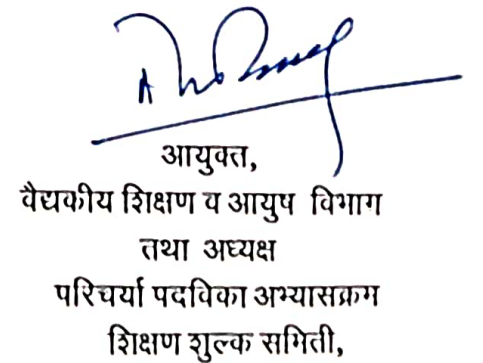 आयुक्त,
वैद्यकीय शिक्षण व आयुष विभाग
तथा अध्यक्ष
परिचर्या पदविका अभ्यासक्रम
शिक्षण शुल्क समिती,